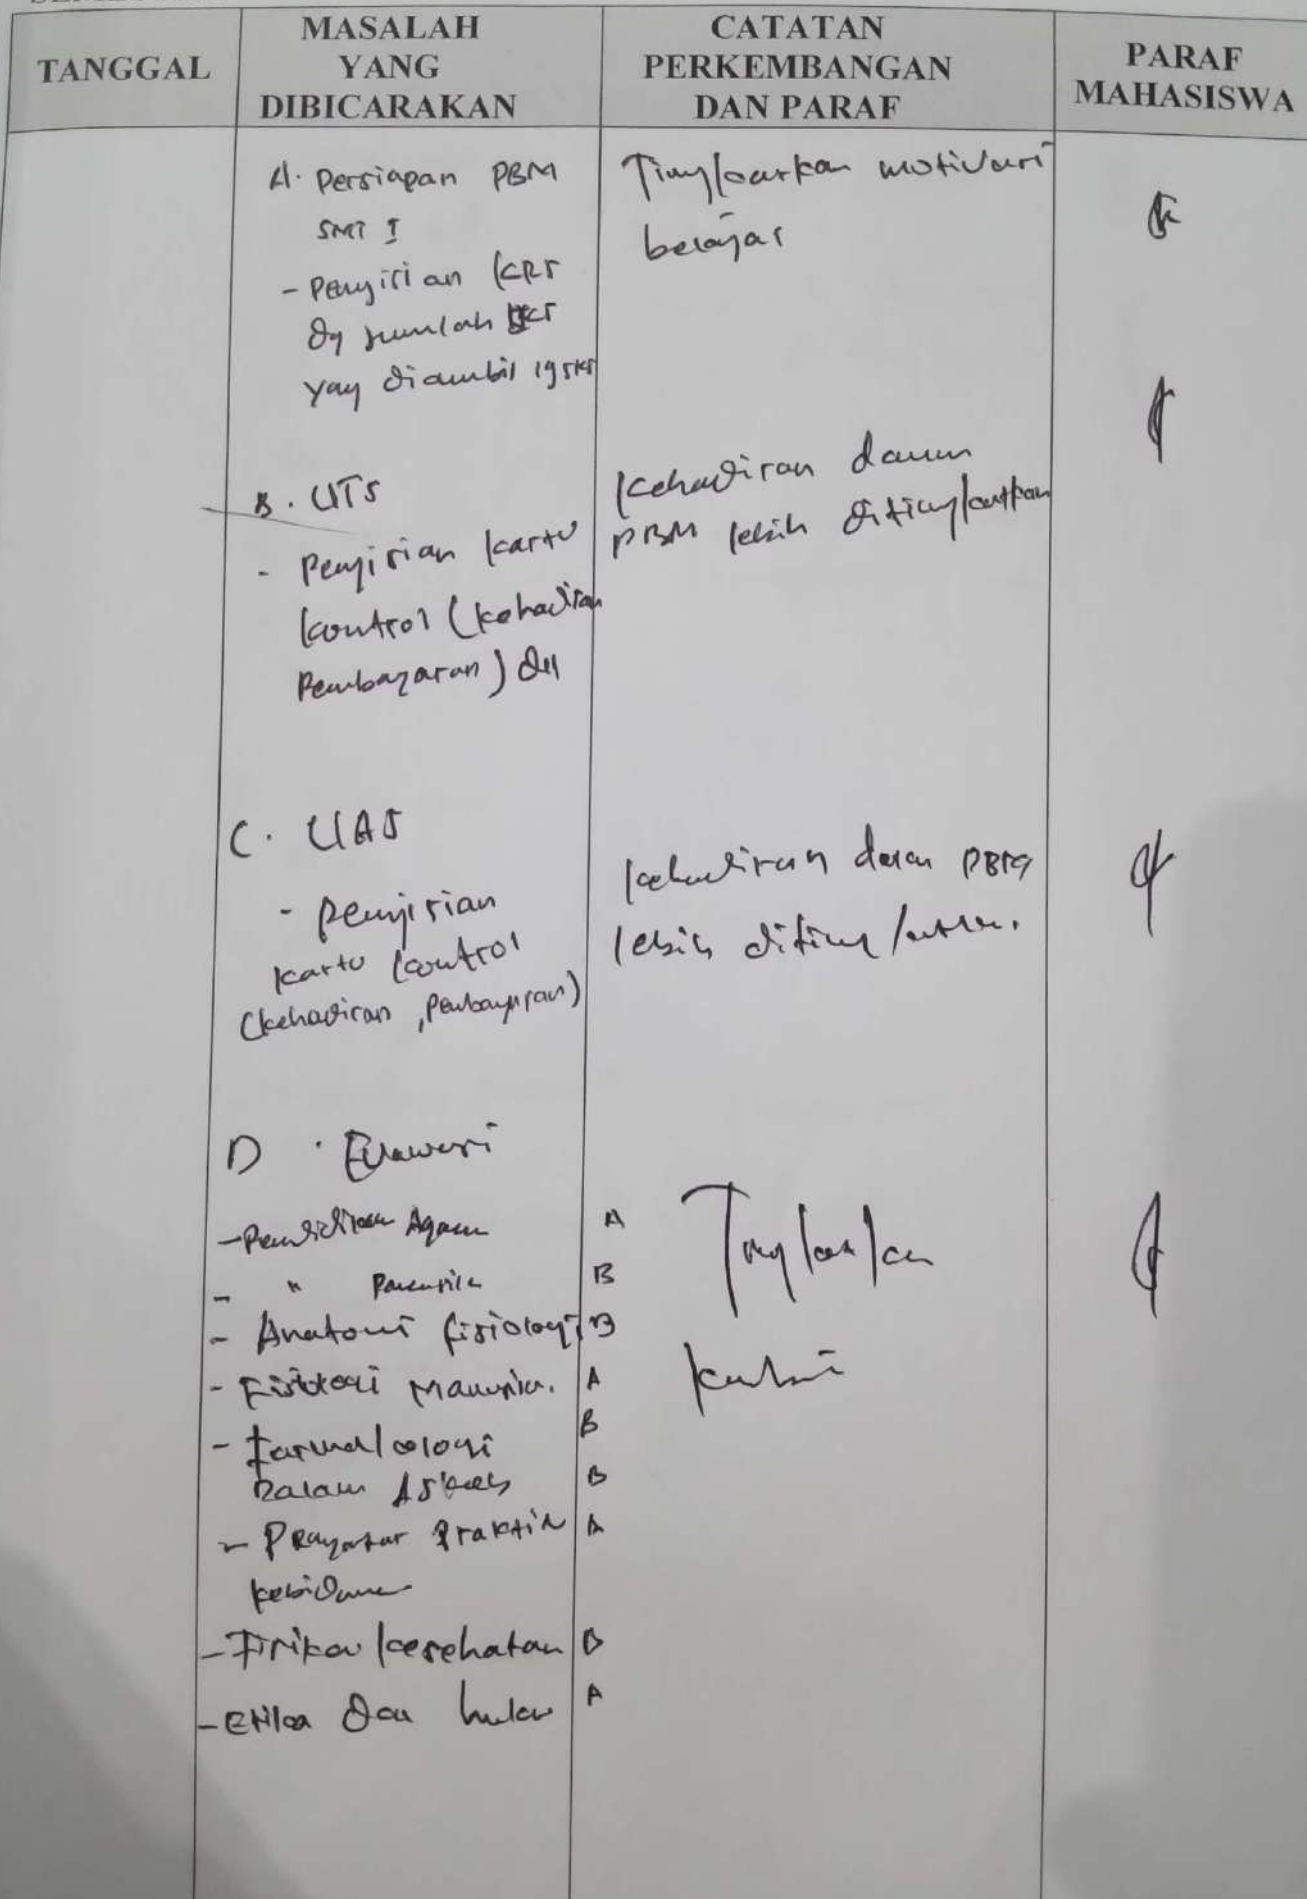 TANGGAL
MASALAH
YANG
DIBICARAKAN
CATATAN
PERKEMBANGAN
DAN PARAF
PARAF
MAHASISWA
A. Persiapan PBM
SMT I
- Pengisian KRS
dg jumlah SKS
yang diambil 19 SKS
Tingkatkan motivasi
belajar
B. UTS
- Pengisian kartu
kontrol (kehadiran
Pembayaran) dll
Kehadiran dalam
PBM lebih ditingkatkan
C. UAS
- Pengisian
kartu kontrol
(kehadiran, Pembayaran)
Kehadiran dalam PBM
lebih ditingkatkan.
D. Evaluasi
- Pendidikan Agama A
- " Pancasila B
- Anatomi fisiologi B
- Fisiologi Manusia. A
- Farmakologi B
Dalam B
- Pengantar Praktik A
kebidanan
- Fisika kesehatan B
- Etika dan A
Tingkatkan